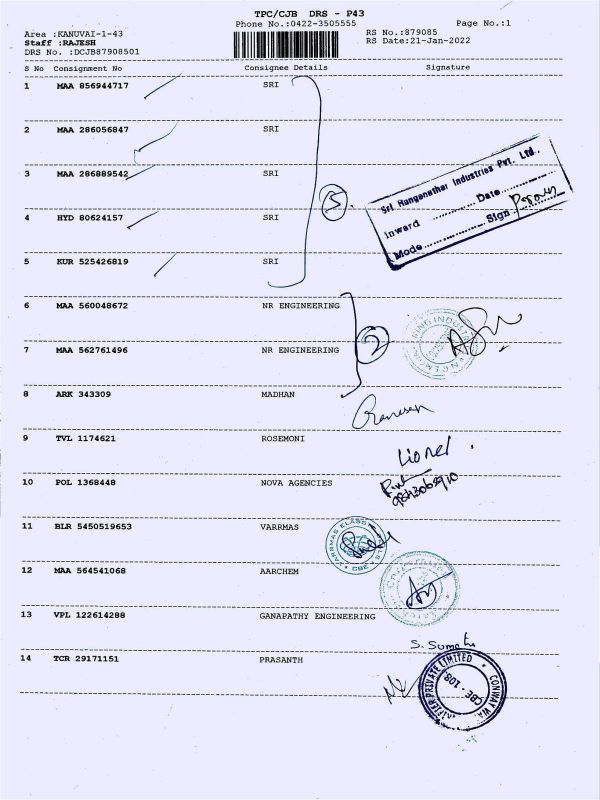 TPC/CJB DRS - P43
Phone No.:0422-3505555
Page No.:1
Area :KANUVAI-1-43
RS No.:879085
Staff :RAJESH
RS Date:21-Jan-2022
DRS No. :DCJB87908501
S No Consignment No Consignee Details Signature
1 MAA 856944717 SRI
2 MAA 286056847 SRI
3 MAA 286889542 SRI
Sri Runganathar Industries Pvt. Ltd.
Inward Date
Mode Sign
5
4 HYD 80624157 SRI
5 KUR 525426819 SRI
6 MAA 560048672 NR ENGINEERING
2
7 MAA 562761496 NR ENGINEERING
8 ARK 343309 MADHAN
9 TVL 1174621 ROSEMONI
Lionel
10 POL 1368448 NOVA AGENCIES
11 BLR 5450519653 VARRMAS
VARRMAS CBE
12 MAA 564541068 AARCHEM
13 VPL 122614288 GANAPATHY ENGINEERING
S. Sumathi
14 TCR 29171151 PRASANTH
CONWAY PRIVATE LIMITED
CBE - 108